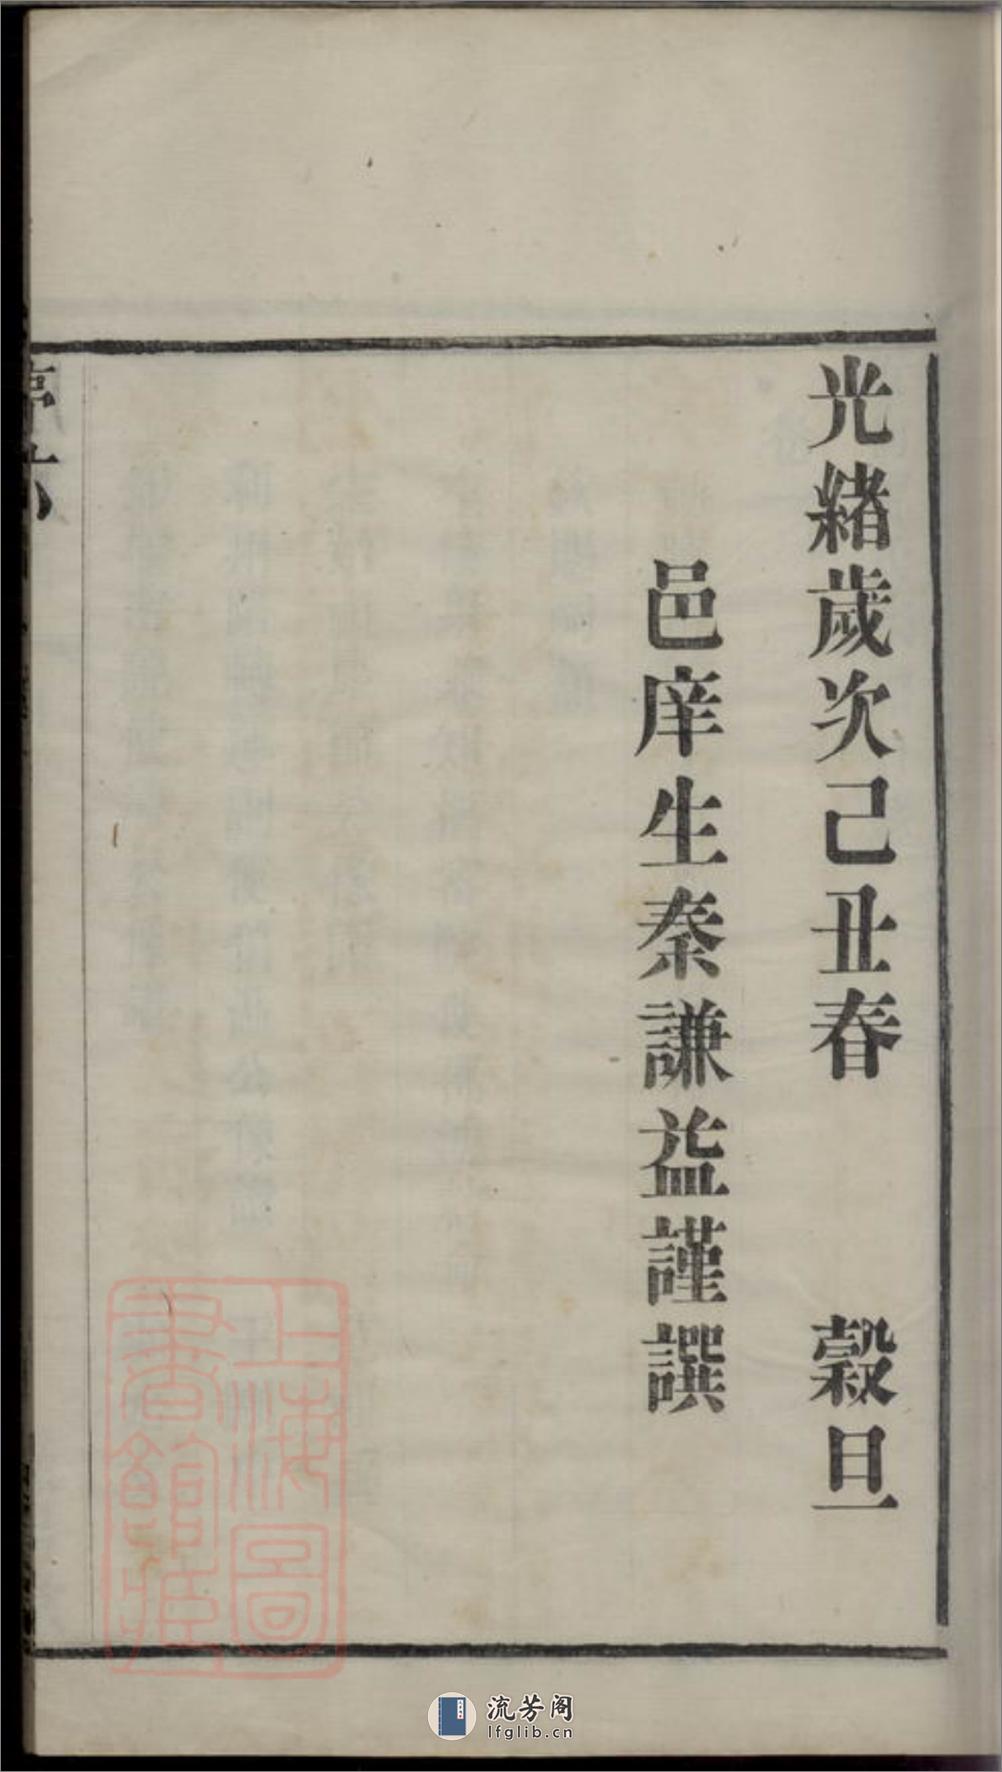 光緒歲次己丑春 穀旦
邑庠生秦謙益謹譔
上海圖書館藏
流芳阁
lfglib.cn